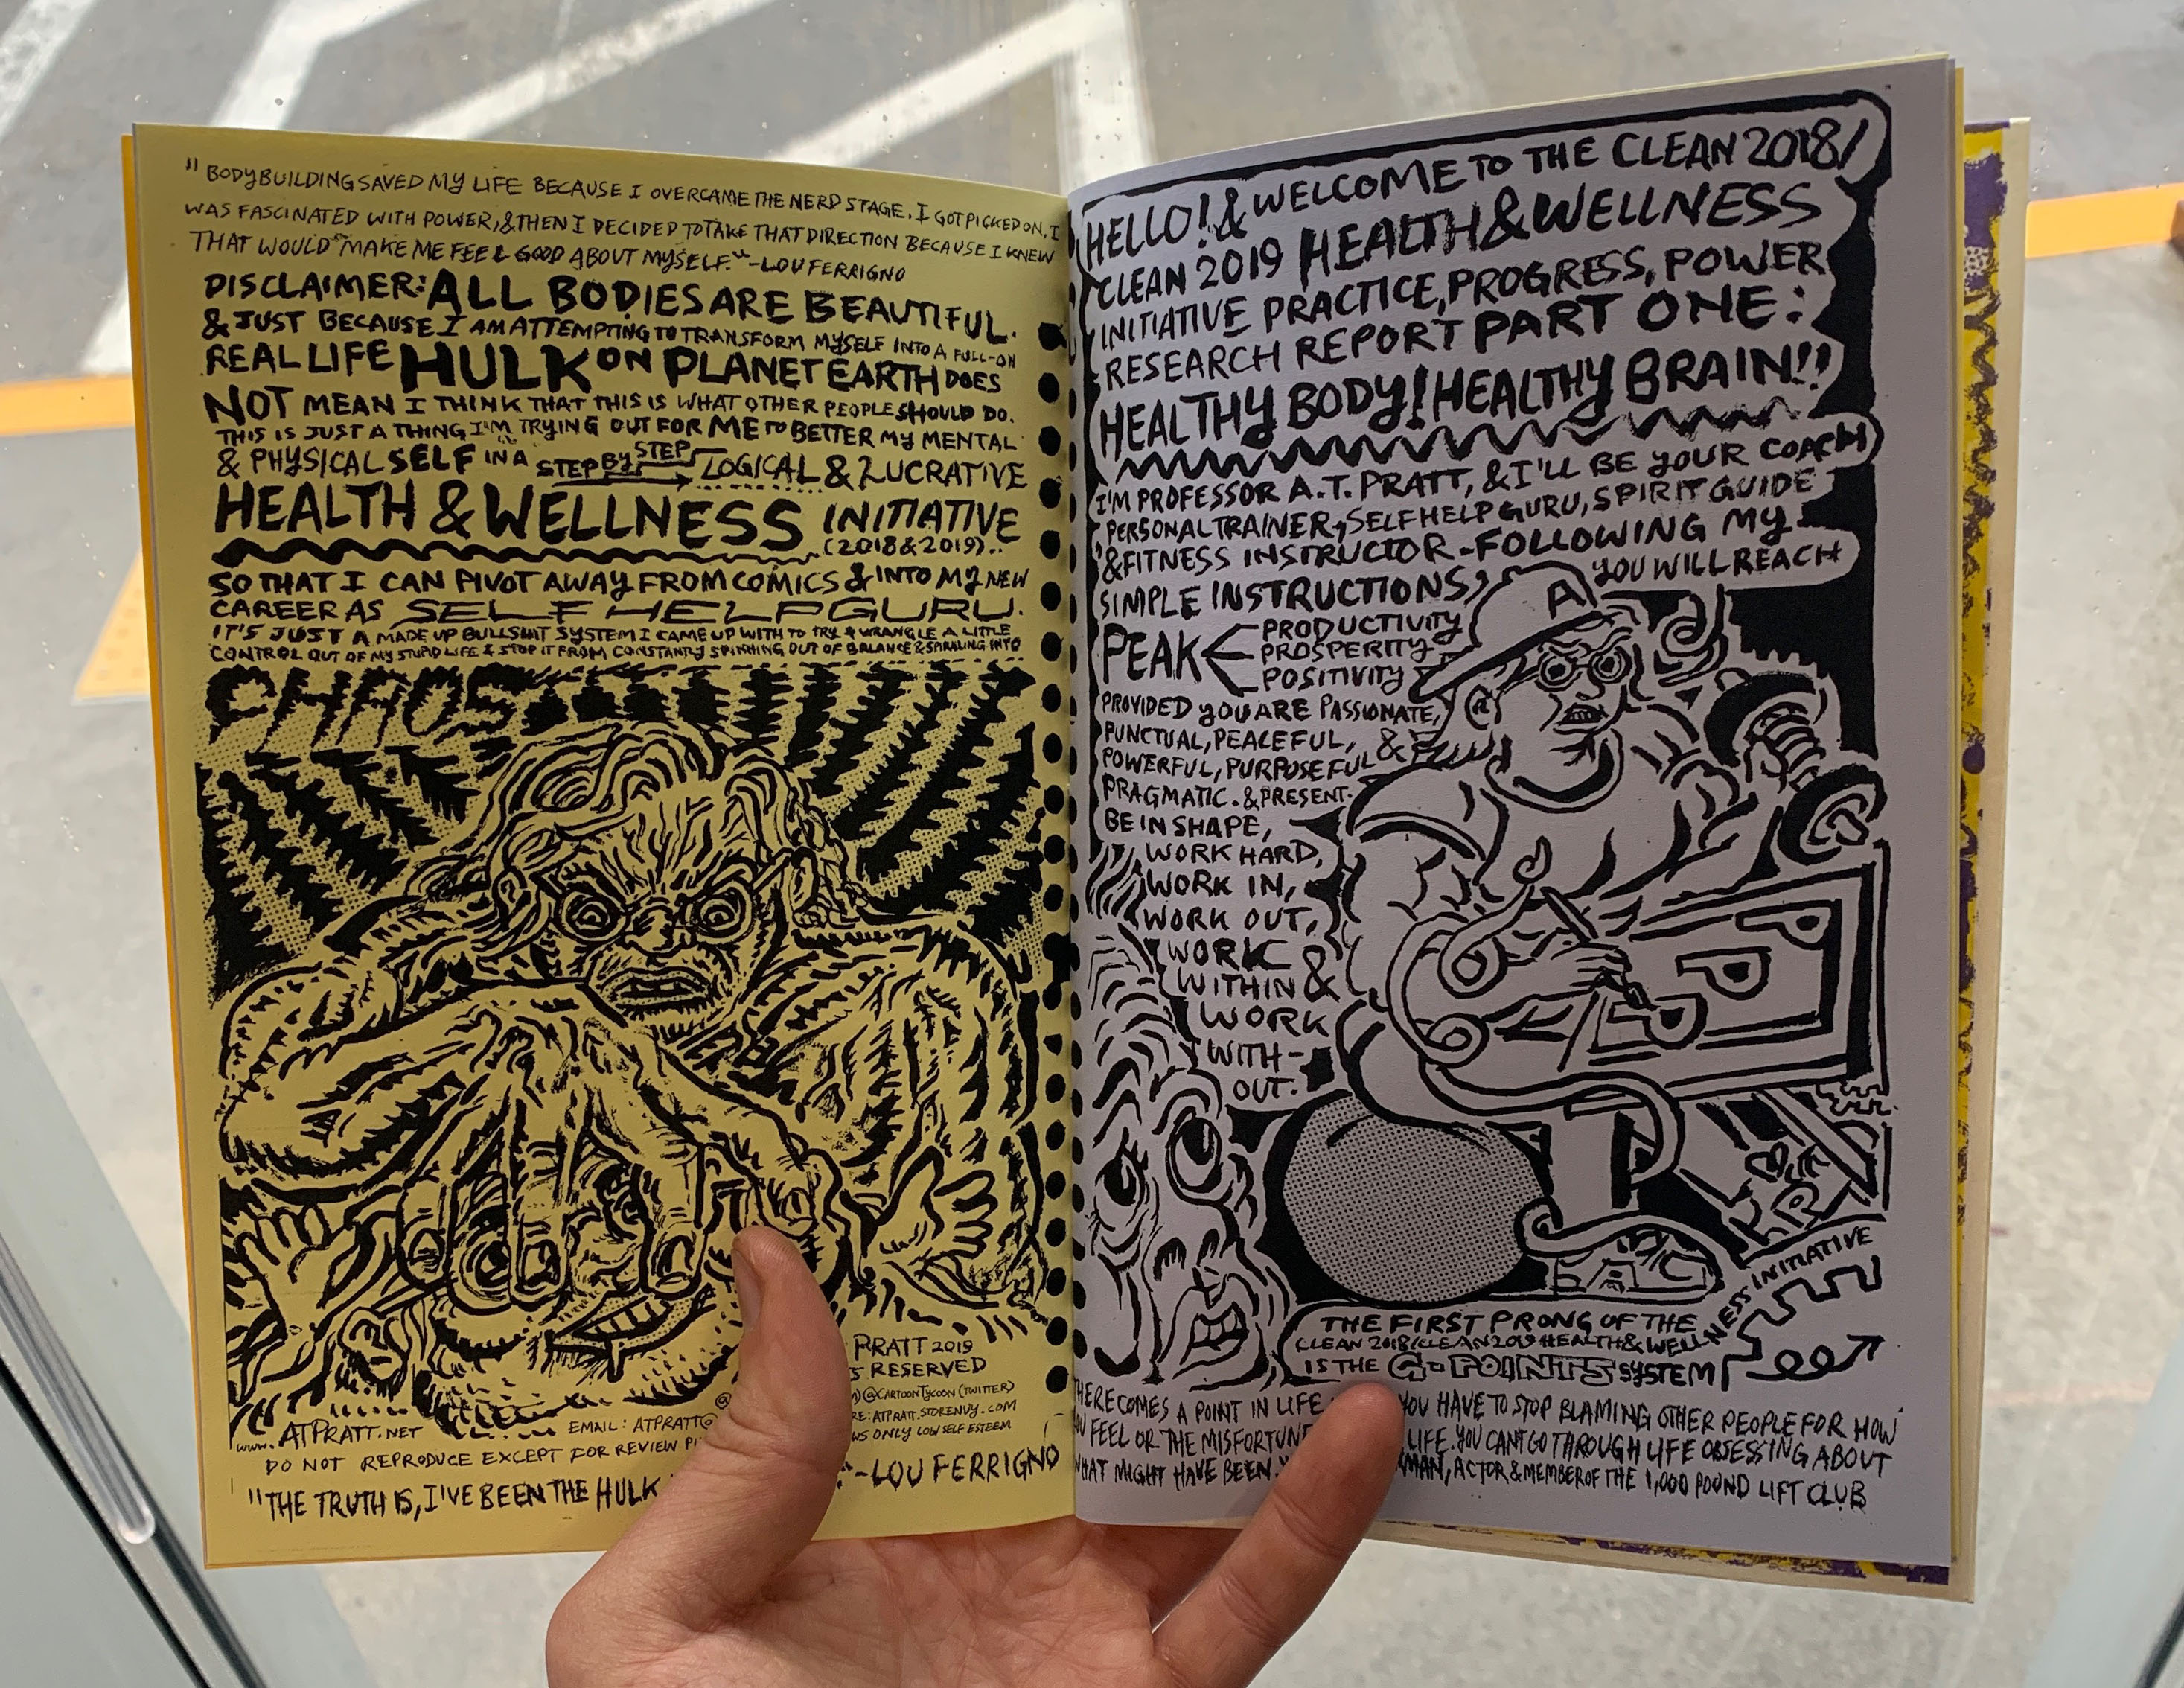 "BODYBUILDING SAVED MY LIFE BECAUSE I OVERCAME THE NERD STAGE, I GOT PICKED ON, I
WAS FASCINATED WITH POWER, & THEN I DECIDED TO TAKE THAT DIRECTION BECAUSE I KNEW
THAT WOULD MAKE ME FEEL GOOD ABOUT MYSELF." -LOU FERRIGNO
DISCLAIMER: ALL BODIES ARE BEAUTIFUL.
& JUST BECAUSE I AM ATTEMPTING TO TRANSFORM MYSELF INTO A FULL-ON
REAL LIFE HULK ON PLANET EARTH DOES
NOT MEAN I THINK THAT THIS IS WHAT OTHER PEOPLE SHOULD DO.
THIS IS JUST A THING I'M TRYING OUT FOR ME TO BETTER MY MENTAL
& PHYSICAL SELF IN A STEP BY STEP LOGICAL & LUCRATIVE
HEALTH & WELLNESS INITIATIVE
(2018 & 2019)..
SO THAT I CAN PIVOT AWAY FROM COMICS & INTO MY NEW
CAREER AS SELF HELP GURU.
IT'S JUST A MADE UP BULLSHIT SYSTEM I CAME UP WITH TO TRY & WRANGLE A LITTLE
CONTROL OUT OF MY STUPID LIFE & STOP IT FROM CONSTANTLY SPINNING OUT OF BALANCE & SPIRALING INTO
CHAOS
PRATT 2019
S RESERVED
@CARTOONTYCOON (TWITTER)
RE: ATPRATT.STORENVY.COM
WS ONLY LOW SELF ESTEEM
www.ATPRATT.NET EMAIL: ATPRATT@
DO NOT REPRODUCE EXCEPT FOR REVIEW
"THE TRUTH IS, I'VE BEEN THE HULK -LOU FERRIGNO
HELLO! & WELCOME TO THE CLEAN 2018/
CLEAN 2019 HEALTH & WELLNESS
INITIATIVE PRACTICE, PROGRESS, POWER
RESEARCH REPORT PART ONE:
HEALTHY BODY! HEALTHY BRAIN!!
I'M PROFESSOR A.T. PRATT, & I'LL BE YOUR COACH
PERSONAL TRAINER, SELF HELP GURU, SPIRIT GUIDE
& FITNESS INSTRUCTOR - FOLLOWING MY
SIMPLE INSTRUCTIONS, YOU WILL REACH
PEAK PRODUCTIVITY
PROSPERITY
POSITIVITY
PROVIDED YOU ARE PASSIONATE,
PUNCTUAL, PEACEFUL, &
POWERFUL, PURPOSEFUL
PRAGMATIC. & PRESENT.
BE IN SHAPE,
WORK HARD,
WORK IN,
WORK OUT,
WORK
WITHIN &
WORK
WITH-
OUT.
A
THE FIRST PRONG OF THE
CLEAN 2018/CLEAN 2019 HEALTH & WELLNESS INITIATIVE
IS THE G-POINTS SYSTEM
THERE COMES A POINT IN LIFE YOU HAVE TO STOP BLAMING OTHER PEOPLE FOR HOW
YOU FEEL OR THE MISFORTUNE LIFE. YOU CANT GO THROUGH LIFE OBSESSING ABOUT
WHAT MIGHT HAVE BEEN. MAN, ACTOR & MEMBER OF THE 1,000 POUND LIFT CLUB